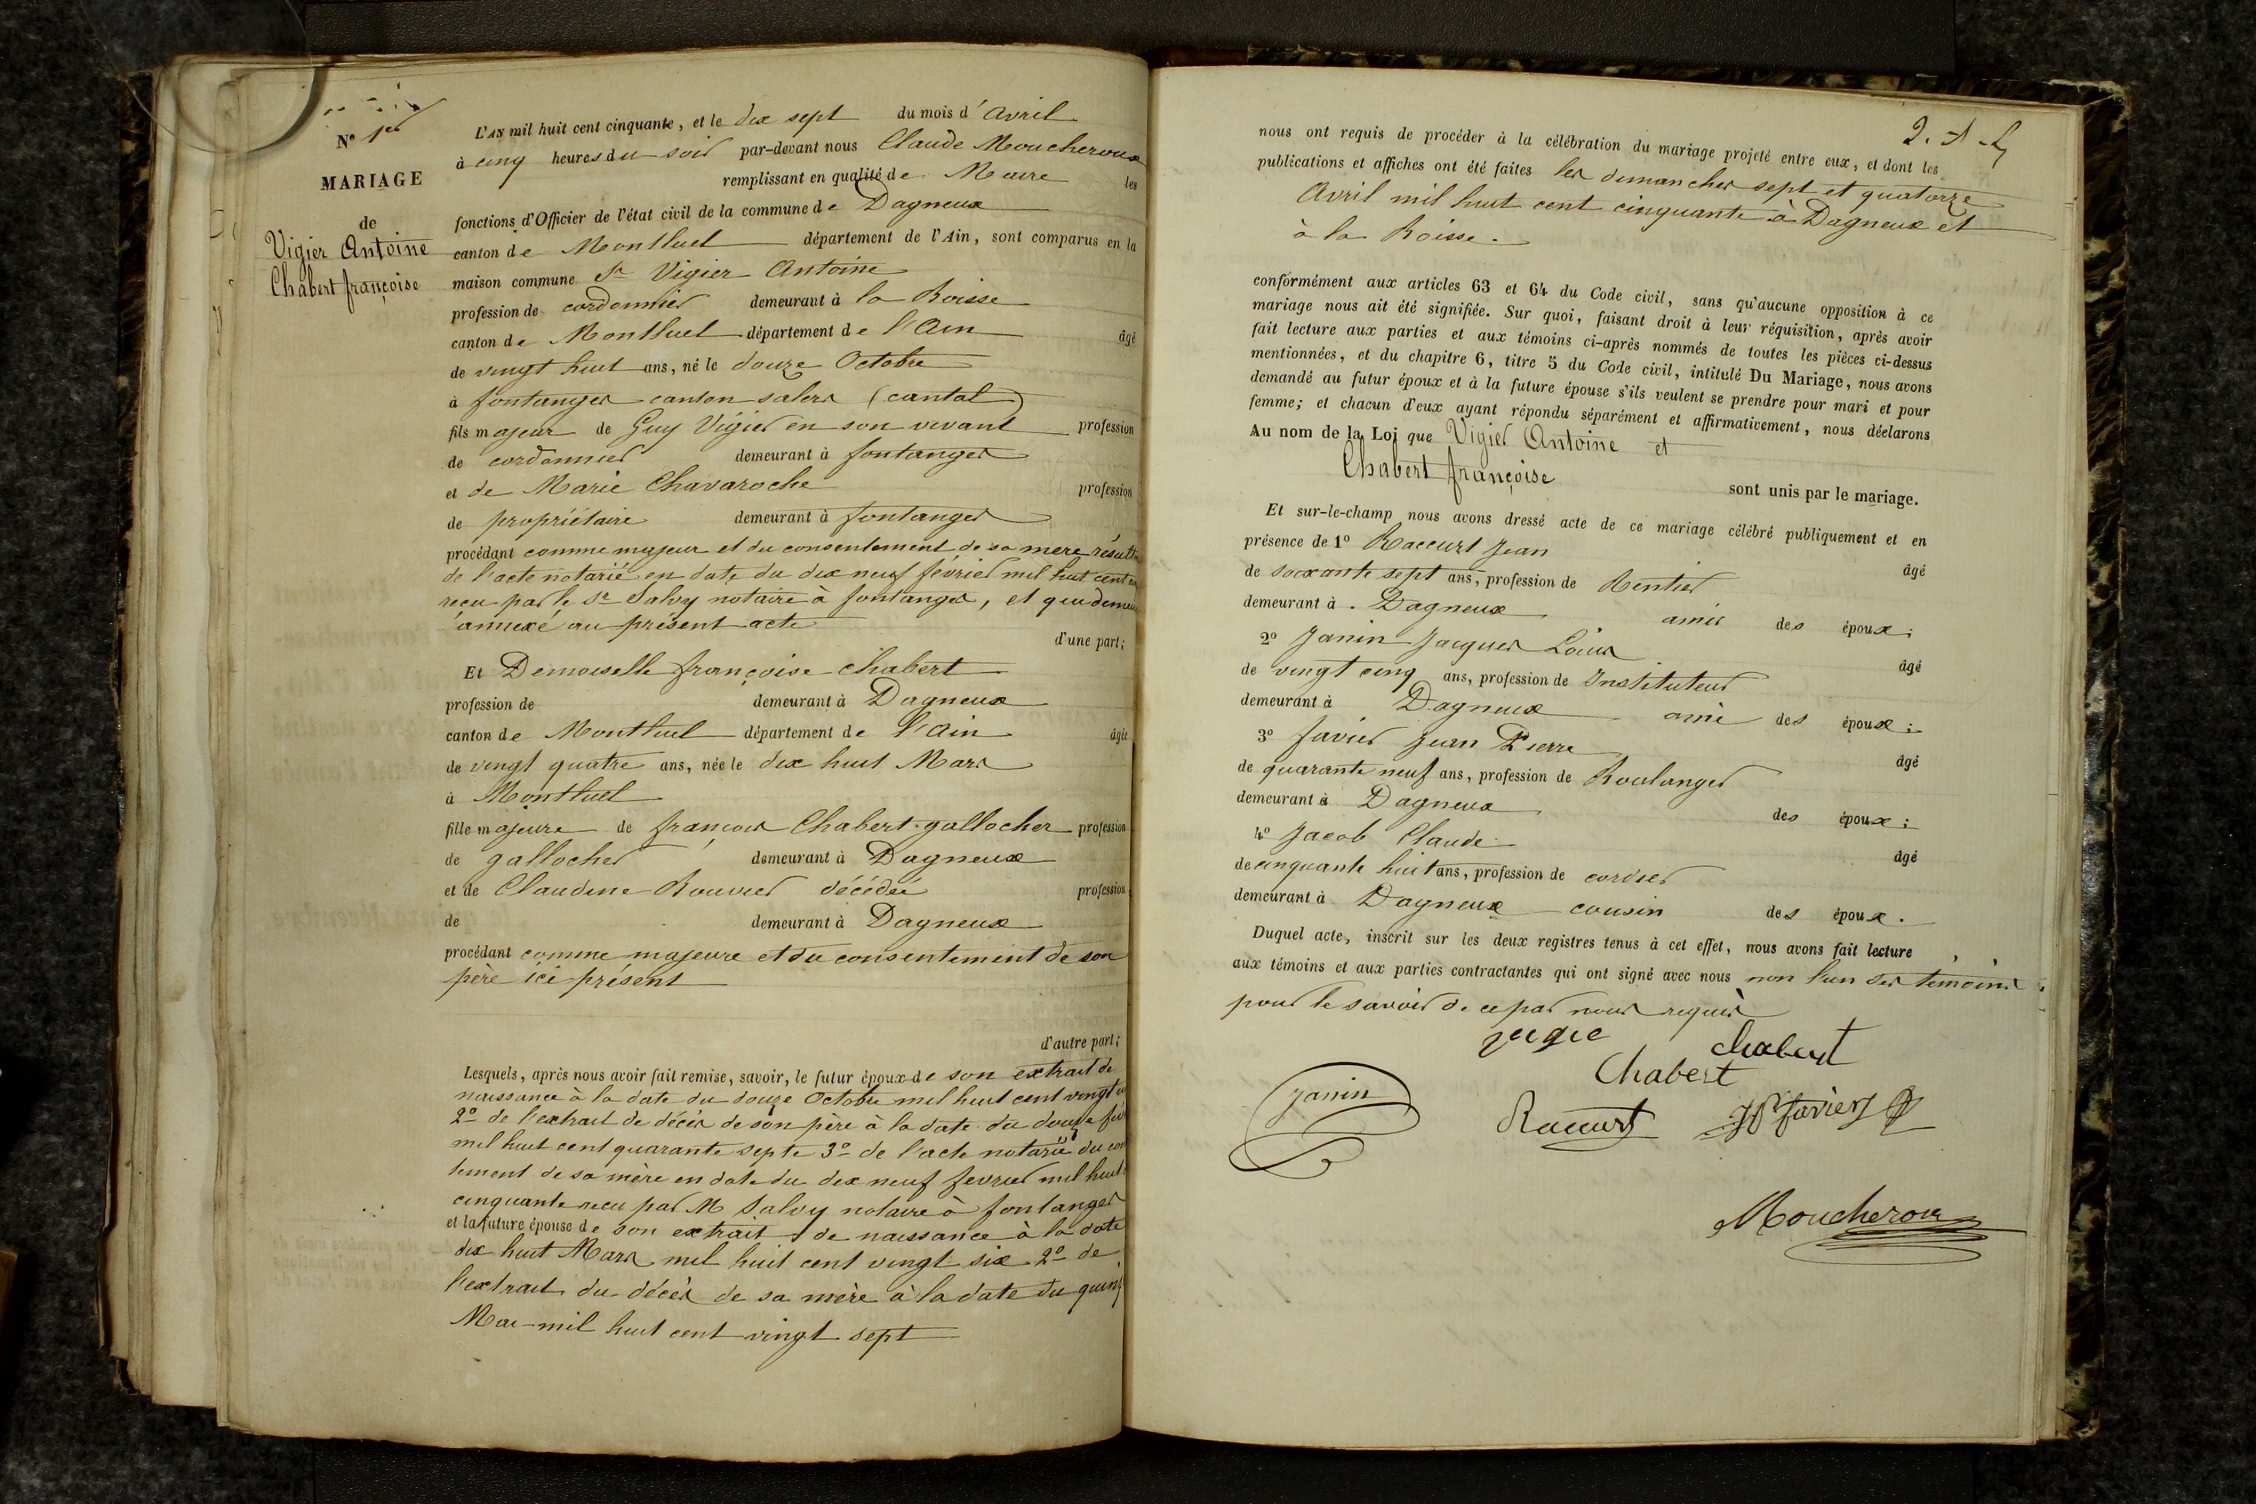 N° 1er
MARIAGE
de
Vigier Antoine
Chabert françoise
L'AN mil huit cent cinquante, et le dix sept du mois d'avril
à cinq heures du soir par-devant nous Claude Moucheroux
remplissant en qualité de Maire les
fonctions d'Officier de l'état civil de la commune de Dagneux
canton de Montluel département de l'Ain, sont comparus en la
maison commune Sr Vigier Antoine
profession de cordonnier demeurant à la Boisse
canton de Montluel département de l'Ain âgé
de vingt huit ans, né le douze Octobre
à fontanges canton salers (cantal)
fils majeur de Guy Vigier en son vivant profession
de cordonnier demeurant à fontanges
et de Marie Chavaroche profession
de propriétaire demeurant à fontanges
procédant comme majeur et du consentement de sa mère résult
de l'acte notarié en date du dix neuf février mil huit cent
reçu par le Sr Salvy notaire à fontanges, et qui demeu
annexé au présent acte
d'une part;
Et Demoiselle françoise chabert
profession de demeurant à Dagneux
canton de Montluel département de l'Ain âgée
de vingt quatre ans, née le dix huit Mars
à Montluel
fille majeure de françois Chabert gallocher profession
de gallocher demeurant à Dagneux
et de Claudine Bouvier décédée profession
de demeurant à Dagneux
procédant comme majeure et du consentement de son
père ici présent
d'autre part;
Lesquels, après nous avoir fait remise, savoir, le futur époux de son extrait de
naissance à la date du douze Octobre mil huit cent vingt
2° de l'extrait de décès de son père à la date du douze
mil huit cent quarante septe 3° de l'acte notarié du con
tement de sa mère en date du dix neuf fevrier mil huit
cinquante recu par M Salvy notaire à fontanges
et la future épouse de son extrait de naissance à la date
dix huit Mars mil huit cent vingt six 2° de
l'extrait du décès de sa mère à la date du quinz
Mai mil huit cent vingt sept
nous ont requis de procéder à la célébration du mariage projeté entre eux, et dont les
publications et affiches ont été faites les dimanches sept et quatorze
Avril mil huit cent cinquante à Dagneux et
à la Boisse.
conformément aux articles 63 et 64 du Code civil, sans qu'aucune opposition à ce
mariage nous ait été signifiée. Sur quoi, faisant droit à leur réquisition, après avoir
fait lecture aux parties et aux témoins ci-après nommés de toutes les pièces ci-dessus
mentionnées, et du chapitre 6, titre 5 du Code civil, intitulé Du Mariage, nous avons
demandé au futur époux et à la future épouse s'ils veulent se prendre pour mari et pour
femme; et chacun d'eux ayant répondu séparément et affirmativement, nous déclarons
Au nom de la Loi que Vigier Antoine et
Chabert françoise
sont unis par le mariage.
Et sur-le-champ nous avons dressé acte de ce mariage célébré publiquement et en
présence de 1° Raccurt Jean âgé
de soixante sept ans, profession de Rentier
demeurant à Dagneux amis des époux;
2° Janin Jacques Louis âgé
de vingt cinq ans, profession de Instituteur
demeurant à Dagneux ami des époux;
3° favier Jean Pierre âgé
de quarante neuf ans, profession de Boulanger
demeurant à Dagneux des époux;
4° Jacob Claude âgé
de cinquante huit ans, profession de cordier
demeurant à Dagneux cousin des époux.
Duquel acte, inscrit sur les deux registres tenus à cet effet, nous avons fait lecture
aux témoins et aux parties contractantes qui ont signé avec nous non l'un des témoins
pour le savoir de ce par nous requis
chabert
Chabert
Janin
Raccurt JP favier
Moucheroux